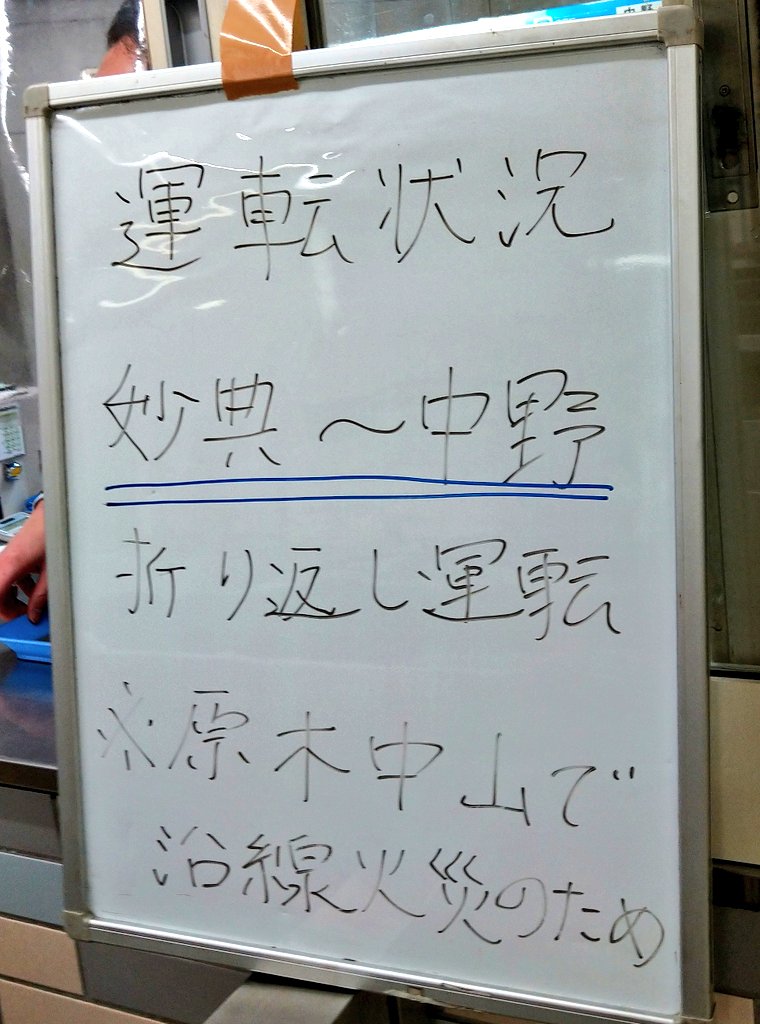 中野
運転状況
妙典～中野
折り返し運転
※原木中山で
沿線火災のため